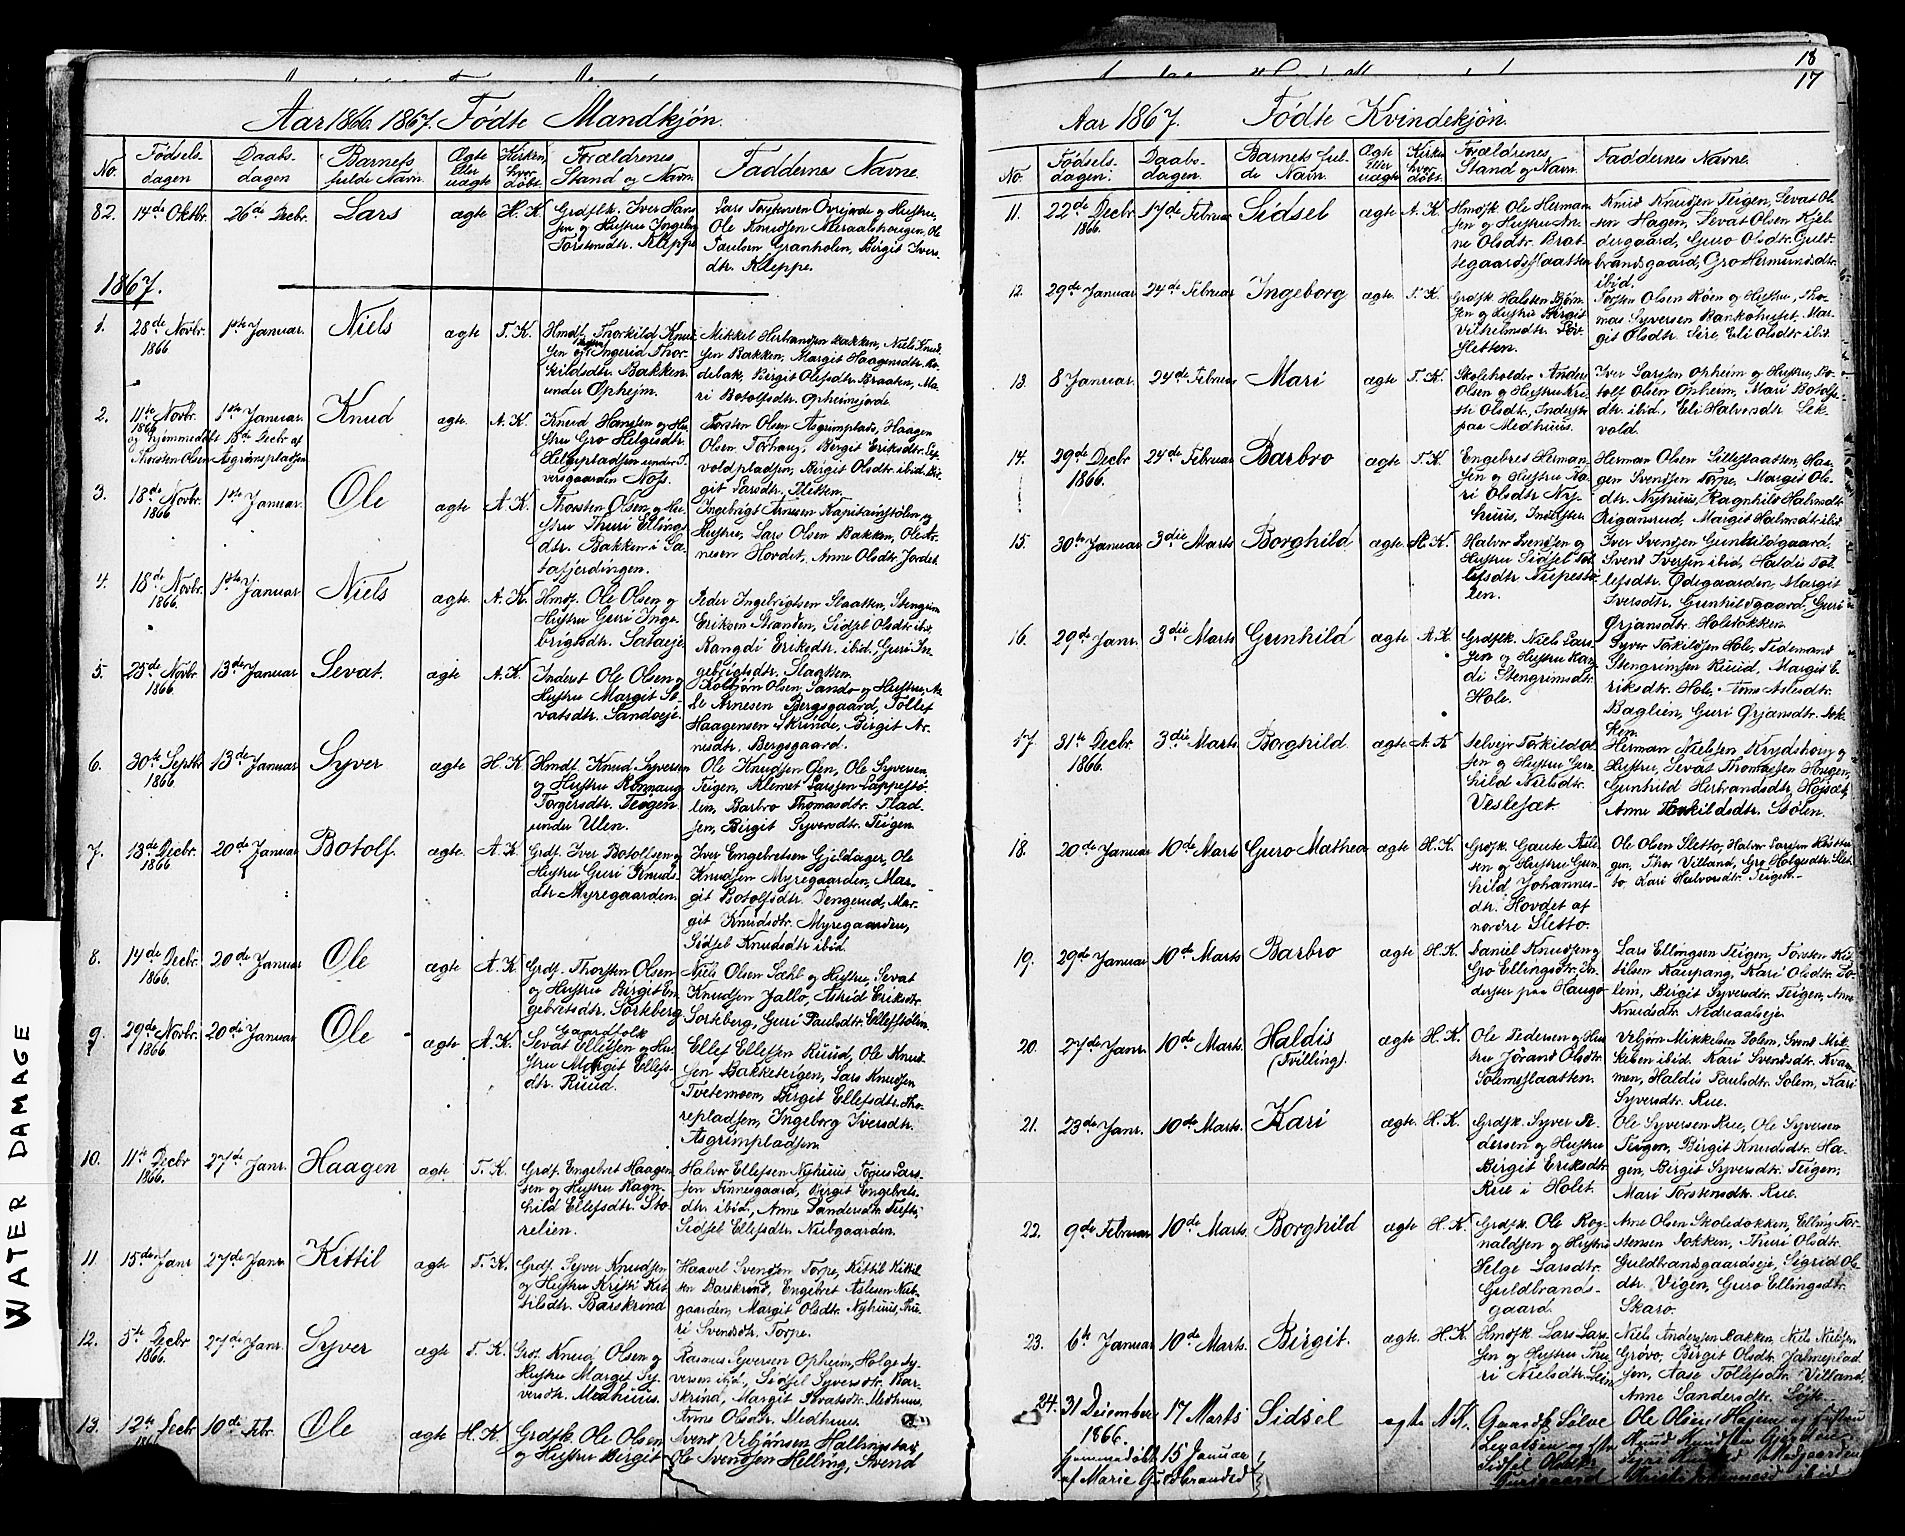 18
17
Aar 1866. 1867. Fødte Mandkjøn.
No.
Fødsels-
dagen
Daabs-
dagen
Barnets
fulde Navn.
Ægte
Eller
uægte
Kirken,
hvor
døbt.
Forældrenes
Stand og Navn.
Faddernes Navne.
82. 14de Oktbr. 26de Decbr. Lars ægte H. K.
Grdflk. Iver Han
sen og Hustru Ingebor
Torstensdtr. Kleppe
Lars Torstensen Øvrejorde og Hustru,
Ole Knudsen Meraalshougen, Ole
Paulsen Granholen, Birgit Ivers-
dtr. Kleppe.
1867.
1. 28de Novbr. 1ste Januar. Niels ægte T. K.
1866
Hmdf. Thorkild Knud
sen og Ingerid Thor-
kildsdtr. Bakken
under Opheim.
Mikkel Herbandsen Bakken, Niels Knud
sen Bakken, Margit Haagensdtr.
Birgit Olefsdtr. Braaten, Ma-
ri Botolfsdtr. Opheimsjorde.
2. 11te Novbr. 1ste Januar. Knud ægte. A. K.
1866
og hjemmedøbt 18de Decbr af
Thorsten Olsen Asgrimspladsen
Knud Hansen og Hu-
stru Gro Helgesdtr.
Helgepladsen under S.
versgaarden Nos.
Torsten Olsen Asgrimplads, Haagen
Olsen Torhaug, Birgit Eriksdtr.
voldpladsen, Birgit Olsdtr. ibid. Bir-
git Larsdtr. Sletten.
3. 18de Novbr. 1ste Januar. Ole ægte A. K.
1866
Thorsten Olsen og Hu-
stru Thuri Ellings-
dtr. Bakken i Sa-
tafjerdingen.
Ingebrigt Arnesen Kapitainstølen og
Hustru, Lars Olsen Bakken, Ole Ar-
nesen Hovdet, Anne Olsdtr. Jordet
4. 18de Novbr. 1ste Januar Niels ægte. A. K.
1866.
Hmdf. Ole Olsen og
Hustru Guri Inge-
brigtsdtr. Sataeje.
Peder Ingebrigtsen Slaatten, Stengrim
Eriksen Stranden, Sidsel Olsdtr. ibid,
Rangdi Eriksdtr. ibid, Guri In-
gebrigtsdtr. Slaatten.
5. 25de Novbr. 13de Januar Sevat. ægte A. K.
1866.
Inderst Ole Olsen og
Hustru Margit Se-
vatsdtr. Sandoeje.
Kolbjørn Olsen Sando og Hustru, As-
le Arnesen Bergsgaard, Tollef
Haagensen Skrinde, Birgit Ar-
nesdtr. Bergsgaard.
6. 30te Septbr. 13de Januar Syver ægte H. K.
1866
Hmdf. Knud Syversen
og Hustru Rønnaug
Torgersdtr. Teigen
under Ulen.
Ole Knudsen Øen, Ole Syversen,
Teigen, Klemet Larsen Lappestø-
len, Barbro Thomasdtr. Plad-
sen, Birgit Syversdtr. Teigen.
7. 13de Decbr. 20de Januar Botolf. ægte. A. K.
1866
Grdf. Iver Botolfsen og
Hustru Guri Knuds-
dtr. Myregaarden.
Iver Engebretsen Gjeldager, Ole
Knudsen Myregaarden, Mar-
git Botolfsdtr. Dengerud, Mar-
git Knudsdtr. Myregaarden,
Sidsel Knudsdtr ibid
8. 14de Decbr. 20de Januar Ole ægte A. K.
1866.
Grdf. Thorsten Olsen
og Hustru Birgit En-
gebretsdtr. Sorkberg
Niels Olsen Sahl og Hustru, Sevat
Knudsen Jallo, Astrid Eriksdtr.
Sorkberg, Guri Paulsdtr. Ellefstølen.
9. 29de Novbr. 20de Januar Ole ægte A. K.
1866
Gaardfolk
Sevat Ellefsen og Hu-
stru Margit Ellefs-
dtr. Ruud.
Ellef Ellefsen Ruud, Ole Knud-
sen Bakketeigen, Lars Knudsen
Tvetemoen, Birgit Ellefsdtr. Tho-
repladsen, Ingeborg Iversdtr.
Asgrimpladsen.
10. 11te Decbr 27de Janr. Haagen ægte T. K.
1866.
Grdf. Engebret Haagen
sen og Hustru Ragn-
hild Ellefsdtr. Sto-
relien.
Halvor Ellefsen Nyhuus, Tosten Lars-
sen Finnesgaard, Birgit Engebrets-
dtr. ibid, Anne Sandersdtr. Tufte,
Sidsel Ellefsdtr. Nubgaarden.
11 15de Janr 27de Janr. Kittil ægte T. K.
Grdf. Syver Knudsen
og Hustru Kristi Kit-
tilsdtr. Barskrind
Haavel Svendsen Torpe, Kittil Kittil-
sen Barskrind, Engebret Aslesen Nub-
gaarden, Margit Olsdtr. Nyhuus, Thu-
ri Svendsdtr. Torpe.
12. 5te Decbr 27de Janr. Syver ægte T. K.
1866.
Grdf. Knud Olsen og
Hustru Margit Sy-
versdtr. Medhuus.
Rasmus Syversen Opheim, Holge Sy-
versen ibid, Sidsel Syversdtr. Bar-
skrind, Margit Sevatsdtr. Medhuus,
Anne Olsdtr. Medhuus.
13. 12te Decbr 10de Febr. Ole ægte H. K.
1866
Grdfk. Ole Olsen
og Hustru Birgit
Svend Vebjønsen Hallingstad
Ole Svendsen Helling, Svend
Aar 1867. Fødte Kvindekjøn.
No.
Fødsels-
dagen.
Daabs-
dagen.
Barnets ful-
de Navn.
Ægte
Eller
uægte
Kirke
hvor
døbt.
Forældrenes
Stand og Navn.
Faddernes Navne.
11. 22de Decbr 17de Februar Sidsel ægte A. K.
1866.
Hmdfk. Ole Herman
sen og Hustru An-
ne Olsdtr. Brat-
tegaardsslaatten
Knud Knudsen Teigen, Sevat Ol-
sen Hagen, Sevat Olsen Kjel-
dergaard, Guro Olsdtr. Guld-
brandsgaard, Gro Hermundsdtr.
ibid.
12. 29de Januar 24de Februar Ingeborg ægte. T. K.
Grdfk. Halsten Bjørn-
sen og Hustru Birgit
Vilhelmsdtr. Løt-
sletten.
Torsten Olsen Røen og Hustru, Tho-
mas Syversen Bankohuset, Mar-
git Olsdtr. Sire, Eli Olsdtr ibid
13. 8 Januar. 24de Februar Mari ægte T. K.
Skoleholder Anders
Olsen og Hustru Kri-
sti Olsdtr, Inderster
paa Medhuus.
Iver Larssen Opheim og Hustru, Bo-
tolf Olsen Opheim, Mari Botolfs-
dtr. ibid, Eli Halvorsdtr Sek-
vold.
14. 29de Decbr 24de Februar Barbro ægte T. K.
1866.
Engebret Herman-
sen og Hustru Ka-
ri Olsdtr Ny-
huus, Inderster
Herman Olsen Lillesslaatten, Haa-
gen Svendsen Torpe, Margit Ols-
dtr. Nyhuus, Ragnhild Halvorsdtr.
Riganerud, Margit Halvorsdtr ibid
15. 30te Januar 3die Marts Borghild ægte H. K.
Halvor Svendsen og
Hustru Sidsel Tol-
lefsdtr Nupestø-
len.
Iver Svendsen Gunhildgaard,
Svend Iversen ibid, Haldis Tol-
lefsdtr. Ødegaarden, Margit
Iversdtr. Gunhildgaard, Guri
Ørjansdtr. Holedokken.
16. 29de Janr. 3die Marts Gunhild ægte A. K.
Grdfk. Niels Lars-
sen og Hustru Ran-
di Stengrimsdtr.
Hole.
Syver Torkildsen Hole, Tidemand
Stengrimsen Ruud, Margit E-
riksdtr. Hole, Anne Aslesdtr.
Baglien, Guri Ørjansdtr. Dok-
ken.
17. 31te Decbr. 3die Marts. Borghild. ægte A. K
1866.
Selveier Torkild Ol-
sen og Hustru Gun-
hild Nielsdtr.
Veslesæt.
Herman Nielsen Krydshoug og
Hustru, Sevat Thomassen Hougen,
Gunhild Herbrandsdtr. Højsæt,
Anne Torkildsdtr. Stølen.
18. 20de Januar 10de Marts Guro Mathea ægte H. K.
Grdfk. Gaute Asle-
sen og Hustru Gun-
hild Johannes-
dtr. Hovdet af
nordre Sletto.
Ole Olsen Sletto, Halvor Larssen
gen, Thor Villand, Gro Holgesdtr. Slet-
to Kari Halvorsdtr. Teigen.
19. 29de Januar 10de Marts. Barbro ægte H. K.
Daniel Knudsen og
Gro Ellingsdtr. In-
derster paa Haugo
Lars Ellingsen Teigen, Torsten Kit-
tilsen Kaupang, Kari Olsdtr. So-
lem, Birgit Syversdtr. Teigen, Anne
Knudsdtr. Nedreaalseje.
20. 27de Janr. 10de Marts. Haldis ægte H. K.
(Tvilling).
Ole Pedersen og Hu-
stru Jørand Olsdtr.
Solemslaatten.
Vebjørn Mikkelsen Solem, Svend Mik-
kelsen ibid. Kari Svendsdtr. Kvam-
men, Haldis Paulsdtr. Solem, Kari
Syversdtr. Rue.
21. 23de Janr. 10de Marts. Kari ægte H. K.
Grdfk. Syver Pe-
dersen og Hustru
Birgit Eriksdtr.
Rue i Holet.
Ole Syversen Rue, Ole Syversen
Teigen, Birgit Knudsdtr. Ha-
gen, Birgit Syversdtr. Teigen,
Mari Torstensdtr. Rue.
22. 9de Februar 10de Marts. Borghild ægte H. K.
Grdfk. Ole Rog-
naldsen og Hustru
Helge Larsdtr.
Guldbrands-
gaard.
Arne Olsen Skoledokken, Elling Tor-
stensen Dokken, Thuri Olsdtr.
Guldbrandsgaardseje, Sigrid Ols-
dtr. Vigen, Guro Ellingsdtr.
Skaro.
23. 6te Januar 10de Marts. Birgit. ægte. H. K.
Hmdfk. Lars Lars-
sen og Hustru Thu-
ri Nielsdtr. Lein
Niels Andersen Bakken, Niels Nielsen
Grøvo, Birgit Olsdtr. Jalmeplad-
sen, Aase Tollefsdtr. Villand,
Anne Sandersdtr. Løjte.
24. 31 December 17 Marts Sidsel ægte A. K.
1866.
hjemmedøbt 15 Januar
af Marie Guldbrandsd
Gaardfk Sølve
Levatsen og Hstru
Sidsel Olsdtr
Ole Olsen Hagen og Hustru
Knud Knudsen